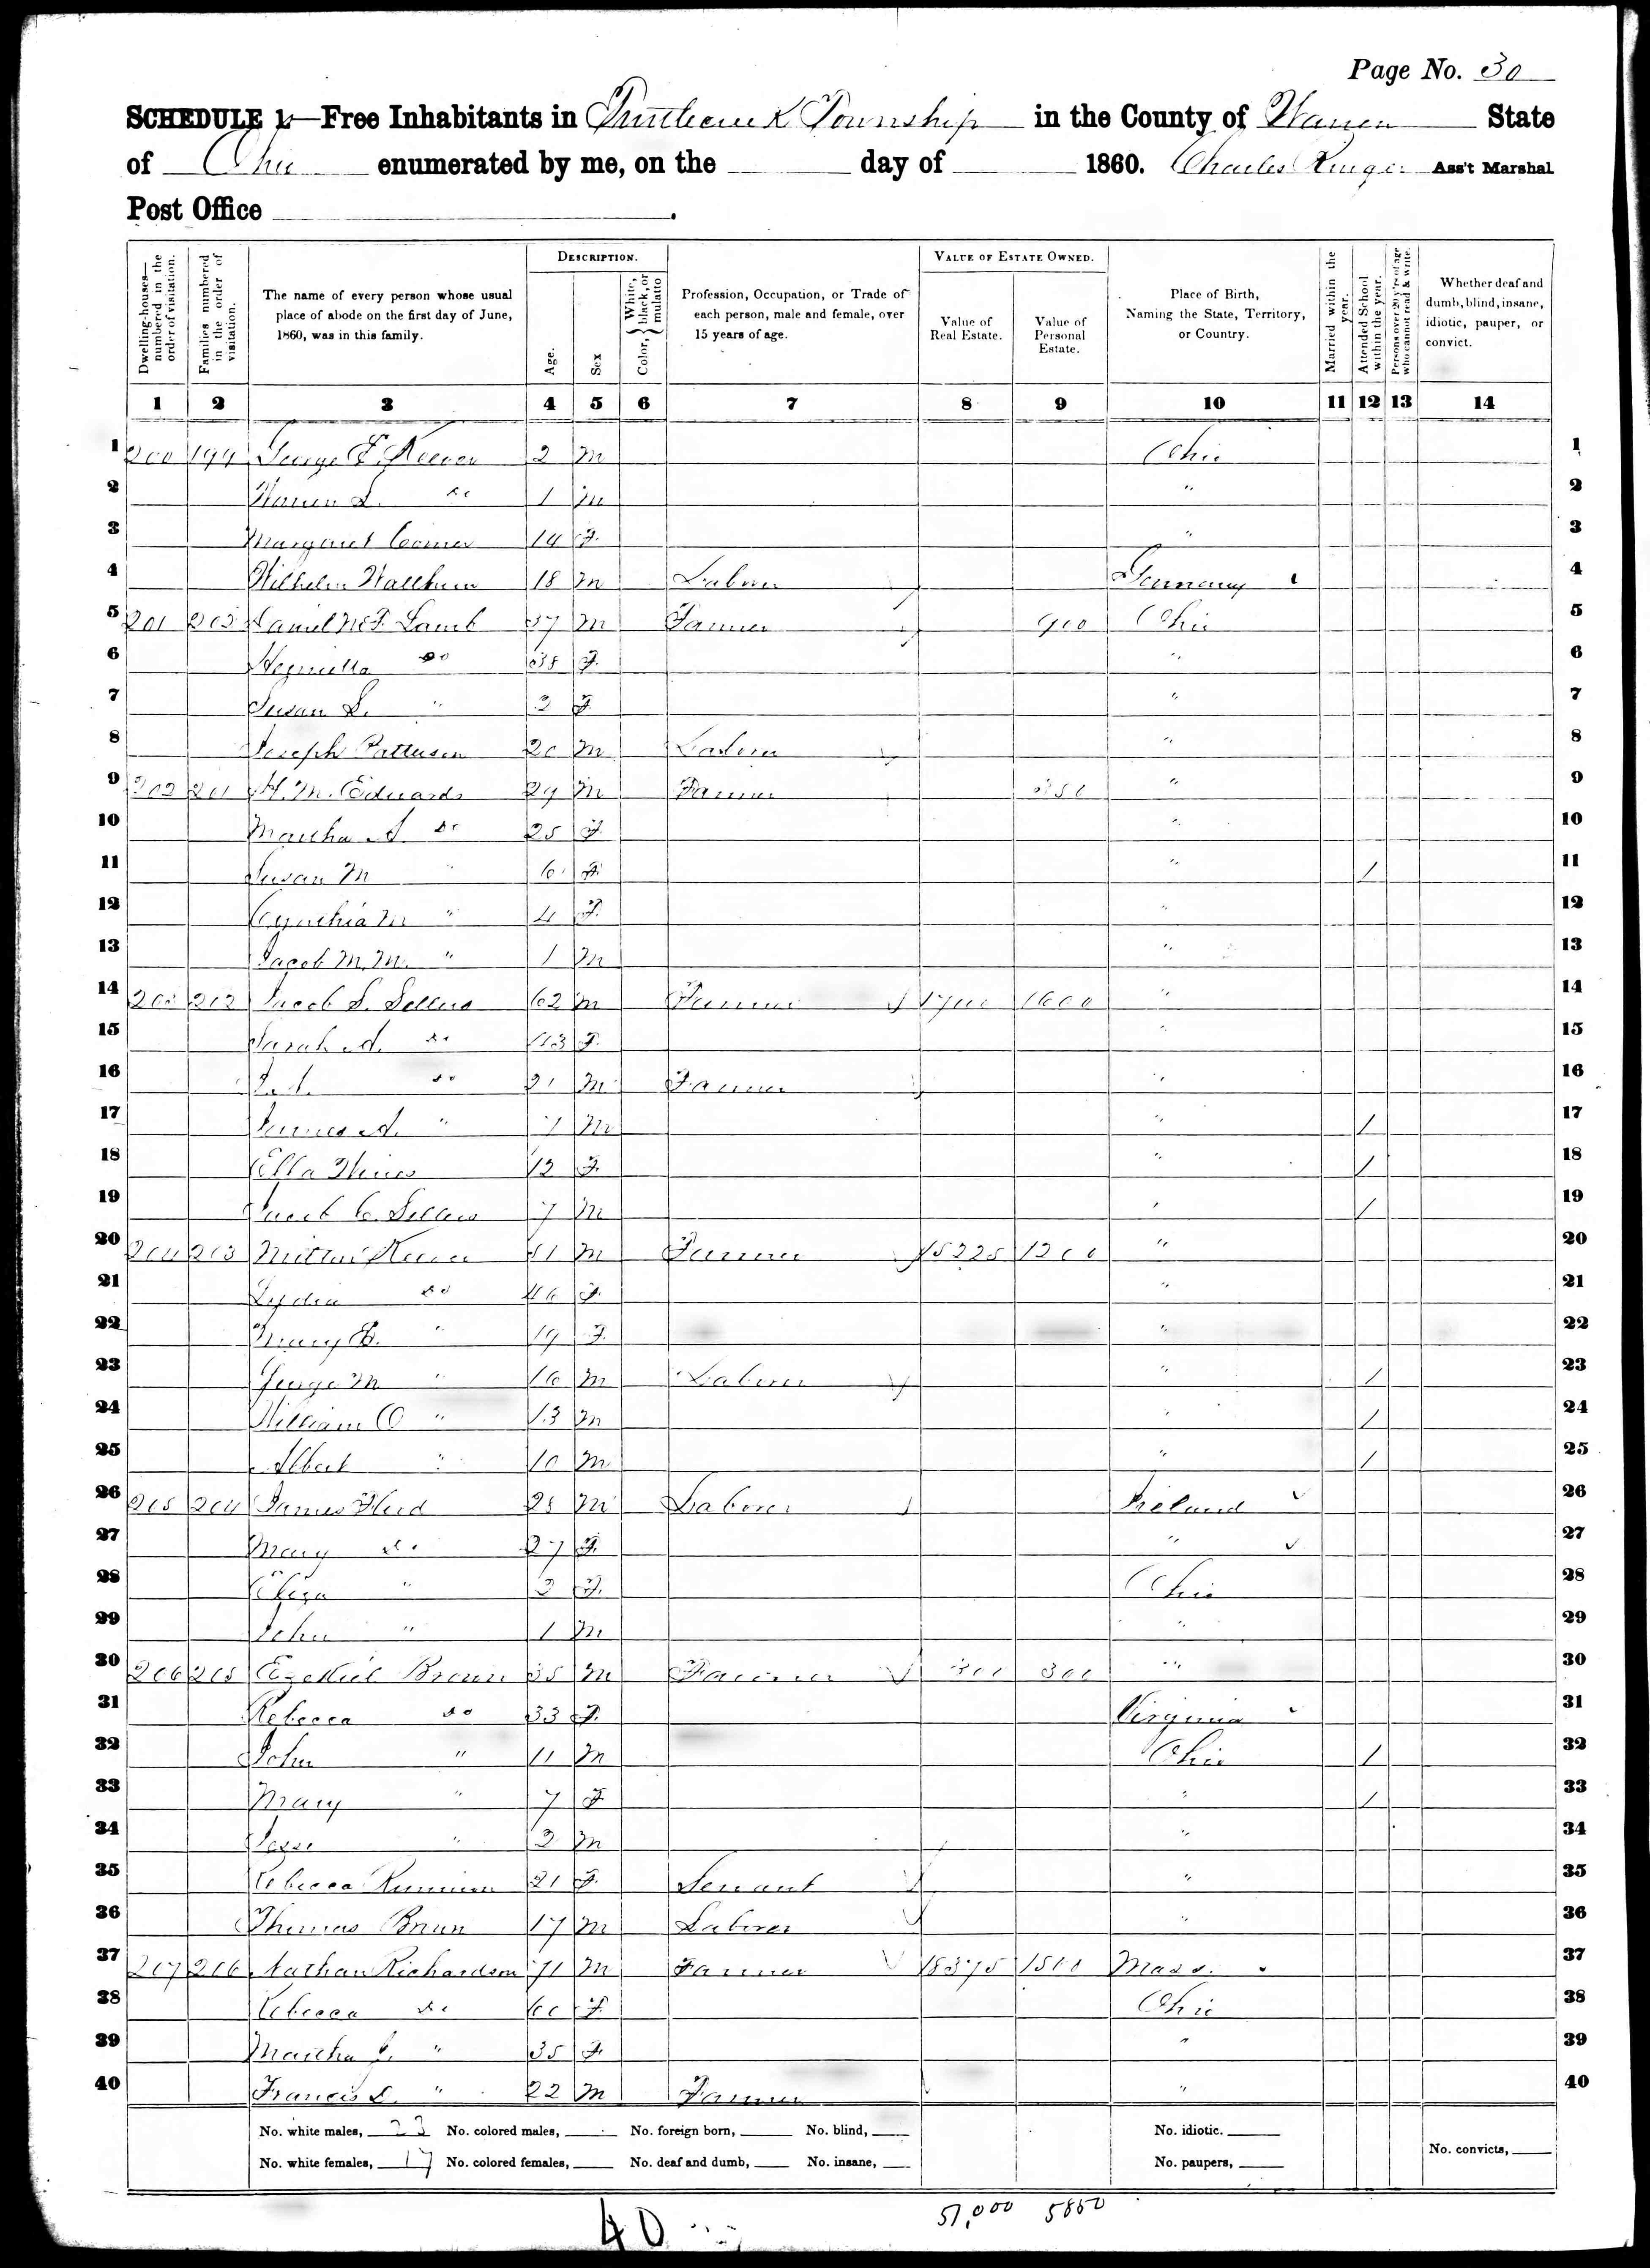 Page No. 30
SCHEDULE 1.—Free Inhabitants in Turtlecreek Township in the County of Warren State
of Ohio enumerated by me, on the ______ day of ______ 1860. Charles Ass't Marshal
Post Office ______.
Dwelling-houses—numbered in the order of visitation.
Families numbered in the order of visitation.
The name of every person whose usual place of abode on the first day of June, 1860, was in this family.
DESCRIPTION.
Age.
Sex
Color, { White, black, or mulatto
Profession, Occupation, or Trade of each person, male and female, over 15 years of age.
VALUE OF ESTATE OWNED.
Value of Real Estate.
Value of Personal Estate.
Place of Birth, Naming the State, Territory, or Country.
Married within the year.
Attended School within the year.
Persons over 20 y'rs of age who cannot read & write.
Whether deaf and dumb, blind, insane, idiotic, pauper, or convict.
1 2 3 4 5 6 7 8 9 10 11 12 13 14
1 200 199 George F. Keever 2 M Ohio 1
2 Warren L. do 1 M " 2
3 Margaret 14 F. " 3
4 Wilhelm 18 M Laborer Germany 4
5 201 Lamb 37 M Farmer 900 Ohio 5
6 Henrietta do 38 F. " 6
7 Susan L. " F. " 7
8 Joseph Patterson 20 M Laborer " 8
9 202 201 M. Edwards 29 M Farmer 350 " 9
10 Martha A. do 25 F. " 10
11 Susan M " 6 F. " / 11
12 Cynthia M " 4 F. " 12
13 Jacob M. M. " 1 M " 13
14 203 202 Jacob S. Sellers 62 M Farmer 1600 " 14
15 Sarah A. do 43 F. " 15
16 do 21 M Farmer " 16
17 James A. " M " / 17
18 Ella 12 F. " / 18
19 Jacob C. Sellers 7 M " / 19
20 204 203 Milton Keever 51 M Farmer 15225 1200 " 20
21 Lydia do 46 F. " 21
22 Mary E. " 19 F. " 22
23 George M " 16 M Laborer " / 23
24 William O " 13 M " / 24
25 Albert " 10 M " / 25
26 205 204 James 28 M Laborer Ireland 26
27 Mary do 27 F. " 27
28 Eliza " F. Ohio 28
29 John " 1 M " 29
30 206 205 Ezekiel Brown 35 M Farmer 300 300 " 30
31 Rebecca do 33 F. Virginia 31
32 John " 11 M Ohio / 32
33 Mary " 7 F " / 33
34 Jesse " M " 34
35 Rebecca 21 F. Servant " 35
36 Thomas Brown 17 M Laborer " 36
37 207 206 Nathan Richardson 71 M Farmer 18375 1500 Mass. 37
38 Rebecca do 60 F. Ohio 38
39 Martha J. " 35 F. " 39
40 Francis L. " 22 M Farmer " 40
No. white males, 23 No. colored males, ___ No. foreign born, ___ No. blind, ___ No. idiotic. ___
No. convicts, ___
No. white females, 17 No. colored females, ___ No. deaf and dumb, ___ No. insane, ___ No. paupers, ___
51,000 5850
40